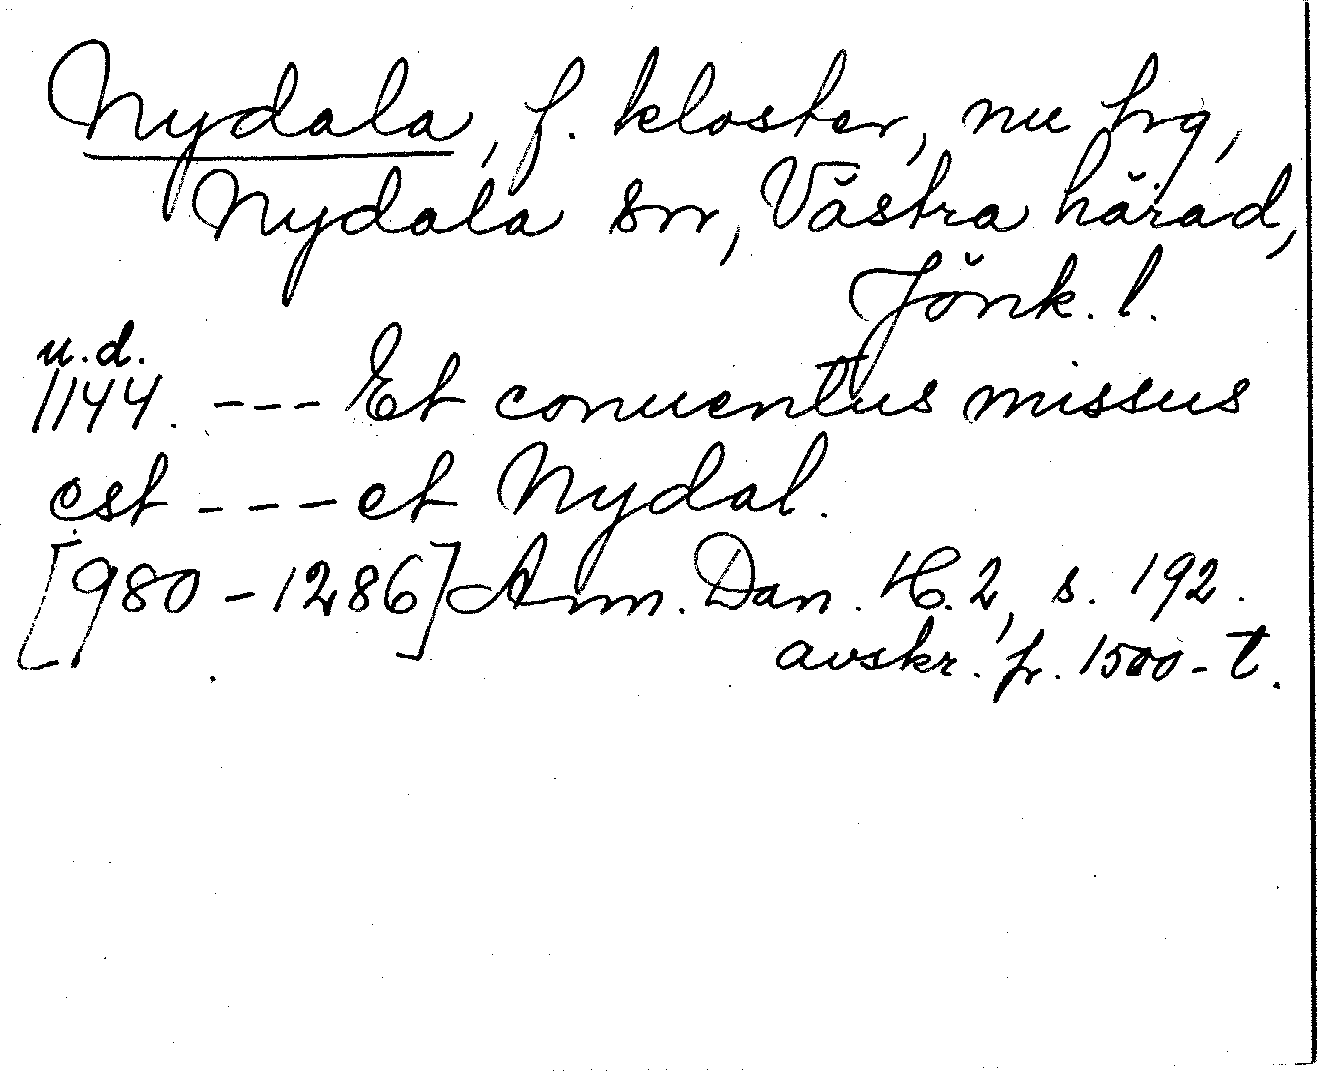 Nydala, f. kloster, nu hrg,
Nydala sn, Västra härad,
Jönk. l.
u.d.
1144. --- Et conuentus missus
est --- et Nydal.
[980-1286] Ann. Dan. H. 2, s. 192.
avskr. fr. 1500-t.